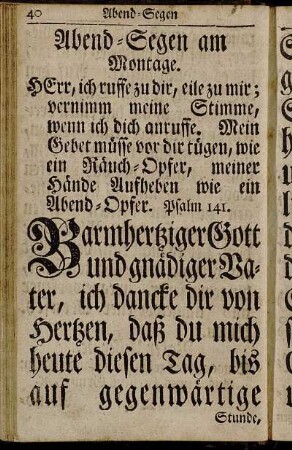 40 Abend-Segen
Abend-Segen am
Montage.
HErr, ich ruffe zu dir, eile zu mir;
vernimm meine Stimme,
wenn ich dich anruffe. Mein
Gebet müsse vor dir tügen, wie
ein Räuch-Opfer, meiner
Hände Aufheben wie ein
Abend-Opfer. Psalm 141.
Barmhertziger Gott
und gnädiger Va-
ter, ich dancke dir von
Hertzen, daß du mich
heute diesen Tag, bis
auf gegenwärtige
Stunde,